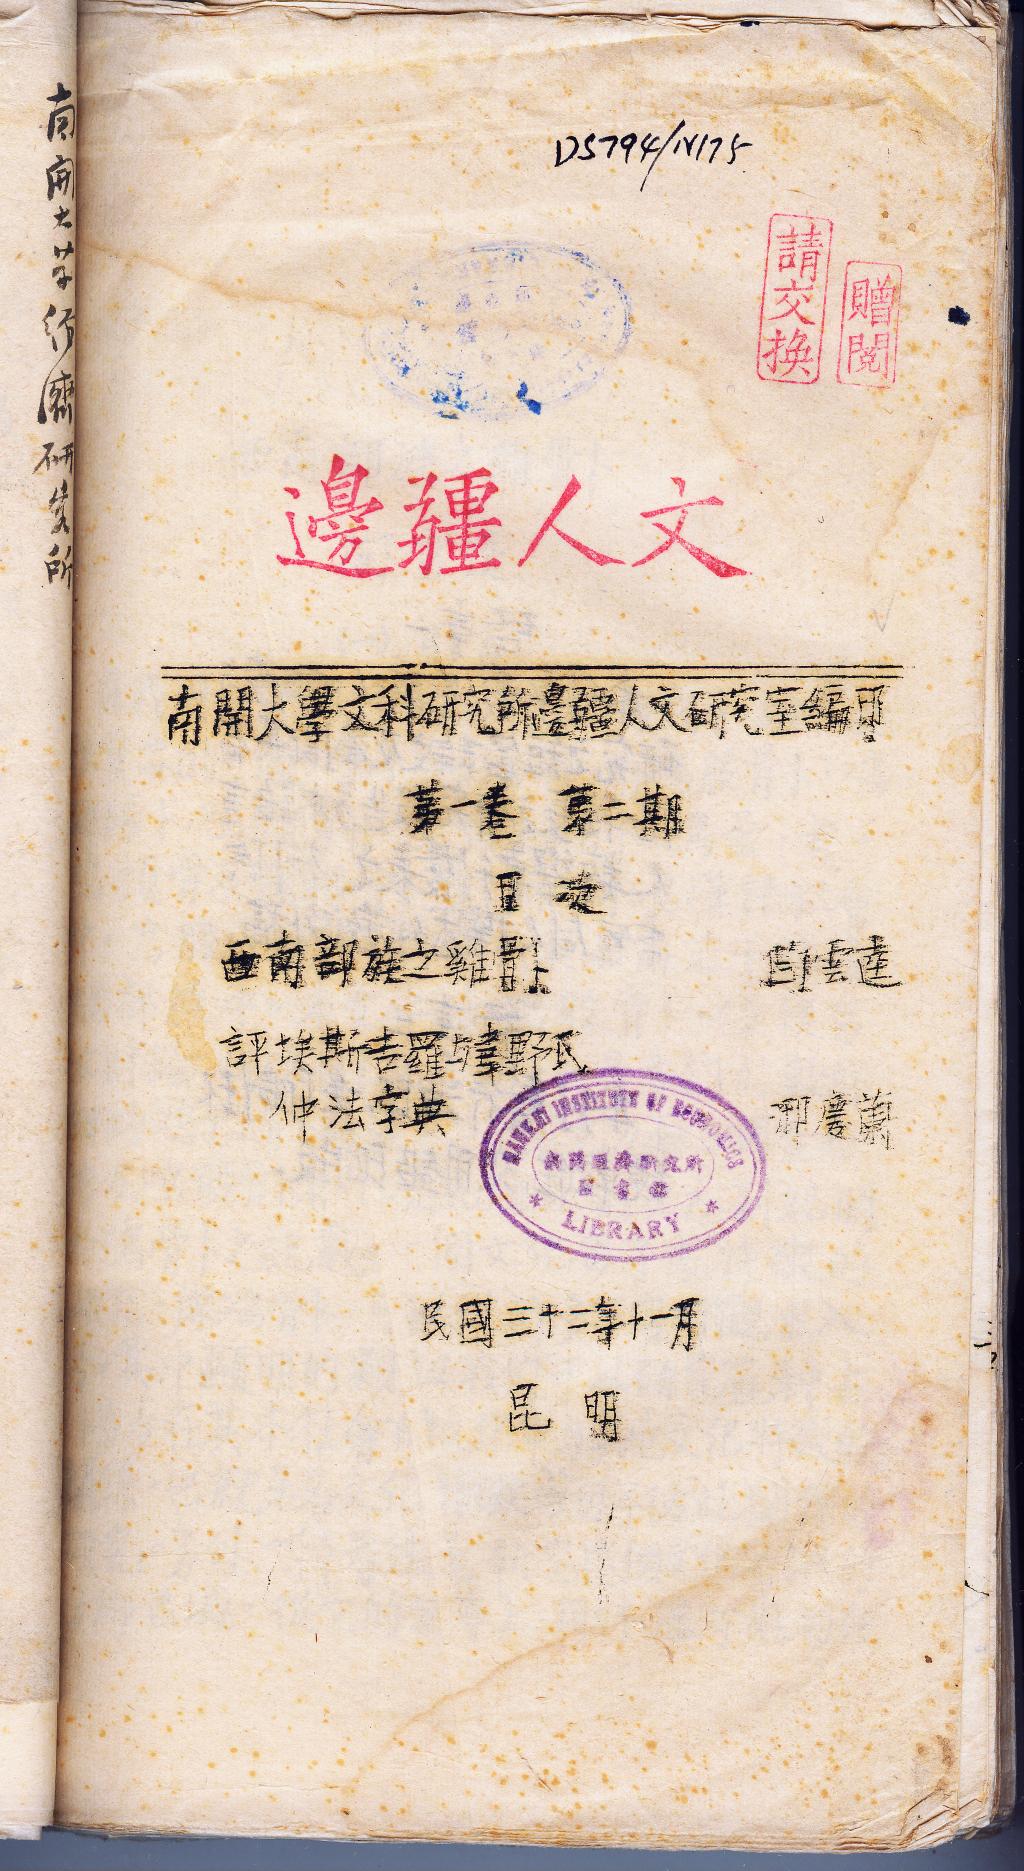 南開大学経濟研究所
DS794/N175
請交換
贈閱
邊疆人文
南開大學文科研究所邊疆人文研究室編印
第一卷 第二期
目次
西南部族之雞骨卜 陶雲逵
評埃斯吉羅与韋野氏
仲法字典 邢慶蘭
NANKAI INSTITUTE OF ECONOMICS
南開經濟研究所
圖書館
LIBRARY
民國三十二年十一月
昆明